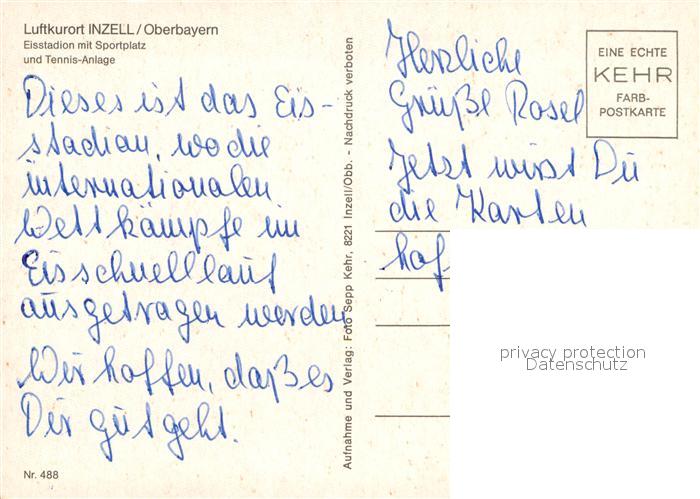 Luftkurort INZELL/Oberbayern
Eisstadion mit Sportplatz
und Tennis-Anlage
Dieses ist das Eis-
stadion, wo die
internationalen
Wettkämpfe im
Eisschnelllauf
ausgetragen werden
Wir hoffen, daß es
Dir gut geht.
Nr. 488
Aufnahme und Verlag: Foto Sepp Kehr, 8221 Inzell/Obb. - Nachdruck verboten
Herzliche
Grüße Rosel
Jetzt wirst Du
die Karten
EINE ECHTE
KEHR
FARB-
POSTKARTE
privacy protection
Datenschutz